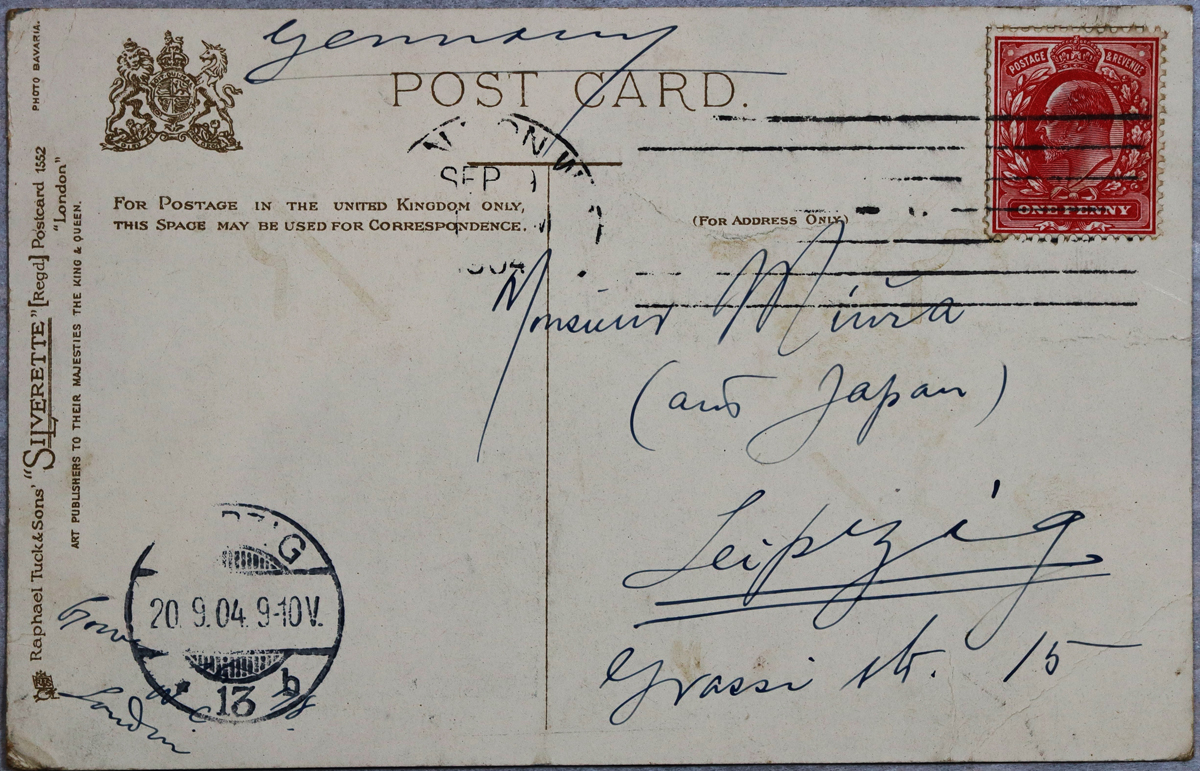 Germany
POST CARD.
POSTAGE & REVENUE
ONE PENNY
LONDON W
SEP
1904
FOR POSTAGE IN THE UNITED KINGDOM ONLY,
THIS SPACE MAY BE USED FOR CORRESPONDENCE.
(FOR ADDRESS ONLY)
Monsieur Miura
(aus Japan)
Leipzig
Grassi str. 15
PZIG
20. 9.04. 9-10V.
* 13 b
Gower St.
W C
London
PHOTO BAVARIA.
Raphael Tuck & Sons' "SILVERETTE" [Regd.] Postcard 1552
"London"
ART PUBLISHERS TO THEIR MAJESTIES THE KING & QUEEN.